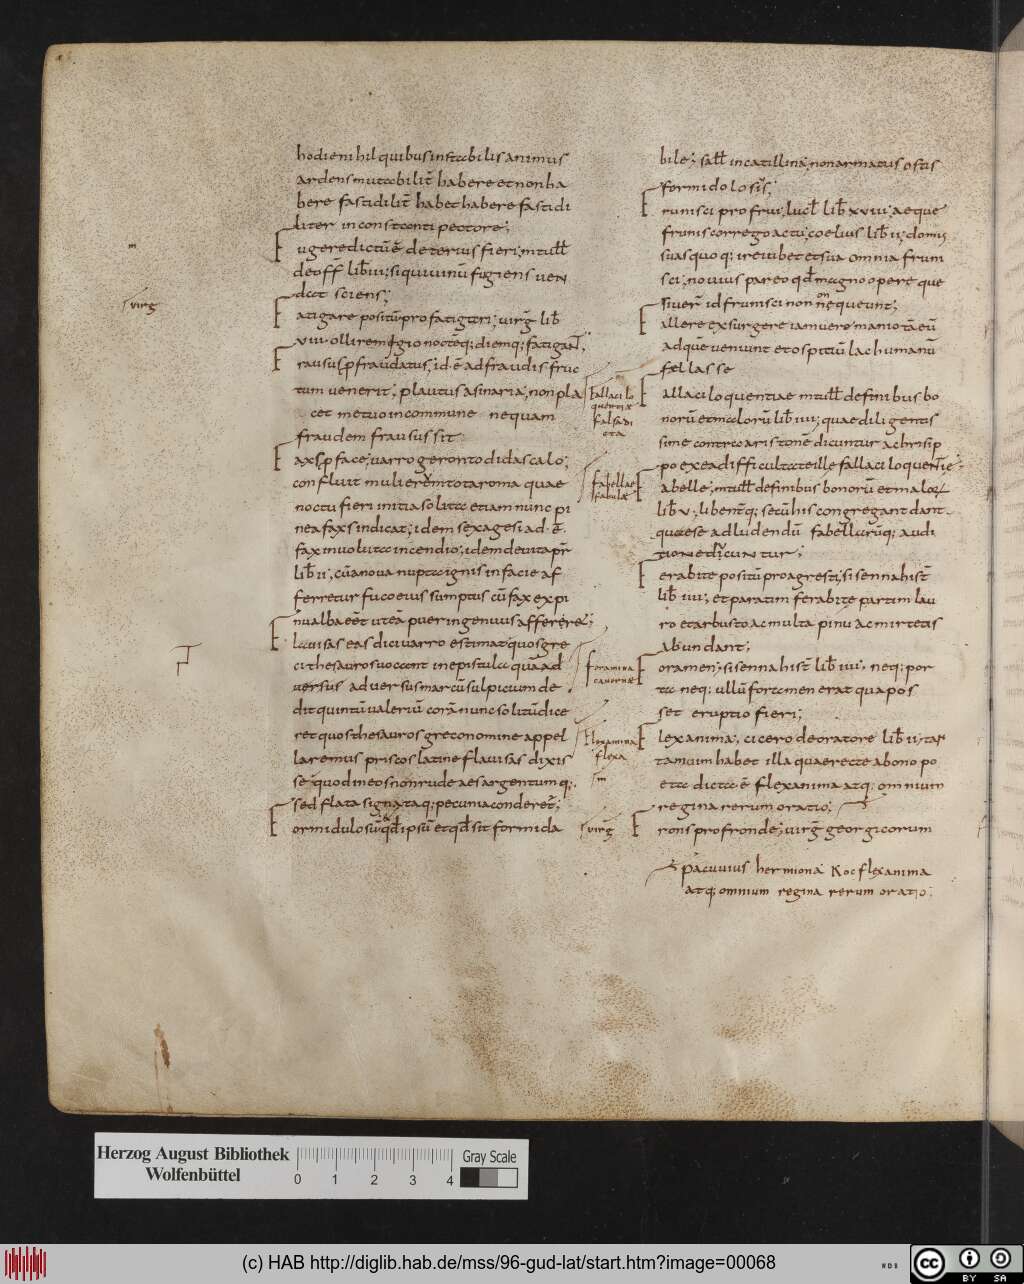 hodie nihil quibus instabilis animus
ardens mutabilit̄ habere et non ha
bere fastidilit̄ habet habere fastidi
liter in constanti pectore;
Fugere dictū ē deterius fieri; m tull̄
de off̄ lib̄ iii; si qui vinū fugiens ven
dat sciens;
Fatigare positū pro fatigari; virḡ lib̄
viiii olli remigio noctēq; diemq; fatigant;
Frausus p fraudatus, id ē ad fraudis fruc
tum venerit, plautus asinaria, non pla
cet metuo in commune nequam
fraudem frausus sit
Fax p face; varro gerontodidascalo;
confluit mulierū tota roma quae
noctu fieri initia solita etiam nunc pi
nea fax indicat; idem sexagesi ad ē
fax involuta incendio; idem de vita pr̄
lib̄ ii, cū a nova nupta ignis in facie af
ferretur fuco eius sumptus cū fax ex pi
nu alba eēt ut eā puer ingenuus afferret;
Flavisas eas dici varro estimat quos gre
ci thesauros vocant in epistula quā ad
versus ad versus marcū sulpicium de
dit quintū valeriū corā nunc solitū dice
ret quos thesauros greco nomine appel
laremus priscos latine flavisas dixis
se quod in eos non rude aes argentumq;
sed flata signataq; pecunia conderet̄;
Formidulosū & qd̄ ipsū et qd̄ sit formida
m
virg
bile; sall̄ in catillinā, non armatus ostis
formidolosis;
Frunisci pro frui, lucl̄ lib̄ xviii; aeque
frunis corrego actu; coelius lib̄ ii; domū
suas quoq; ire iubet et sua omnia frun
sci; novius pareo qd̄ magno opere que
siver̄ id frunisci non nequeunt;
Fallere exsurgere iam vero manio tā eū
ad quē veniunt et ospitiū lac humanū
fellasse
Fallaciloquentiae m tull̄ de finibus bo
norū et malorū lib̄ iiii; quae diligentis
sime contra aristonē dicuntur a chrisip
po ex ea difficultate ille fallaciloquentie
Fabelle; m tull̄ de finibus bonorū et malor
lib̄ v; libentq; secū his congregant dant
quaese ad ludendū fabellarūq; audi
tione dicuntur;
Ferabite positū pro agresti; sisenna hist̄
lib̄ iiii; et paratim ferabite partim lau
ro et arbusto ac multa pinu ac mirtetis
abundant;
Foramen; sisenna hist̄ lib̄ iiii; neq; por
ta neq; ullū foramen erat qua pos
set eruptio fieri;
Flexanima, cicero de oratore lib̄ ii; tan
tam vim habet illa quae recte a bono po
eta dicta ē flexanima atq; omnium
regina rerum oratio;
Frons pro fronde; virḡ georgicorum
pacuuius hermiona hoc flexanima
atq; omnium regina rerum oratio;
fallacilo
quentiæ
falsa di
cta
fabellae
fabulæ
foramina
cavernæ
flexanima
flexa
m
virḡ
Herzog August Bibliothek
Wolfenbüttel
0 1 2 3 4
Gray Scale
(c) HAB http://diglib.hab.de/mss/96-gud-lat/start.htm?image=00068
WDB
cc BY SA